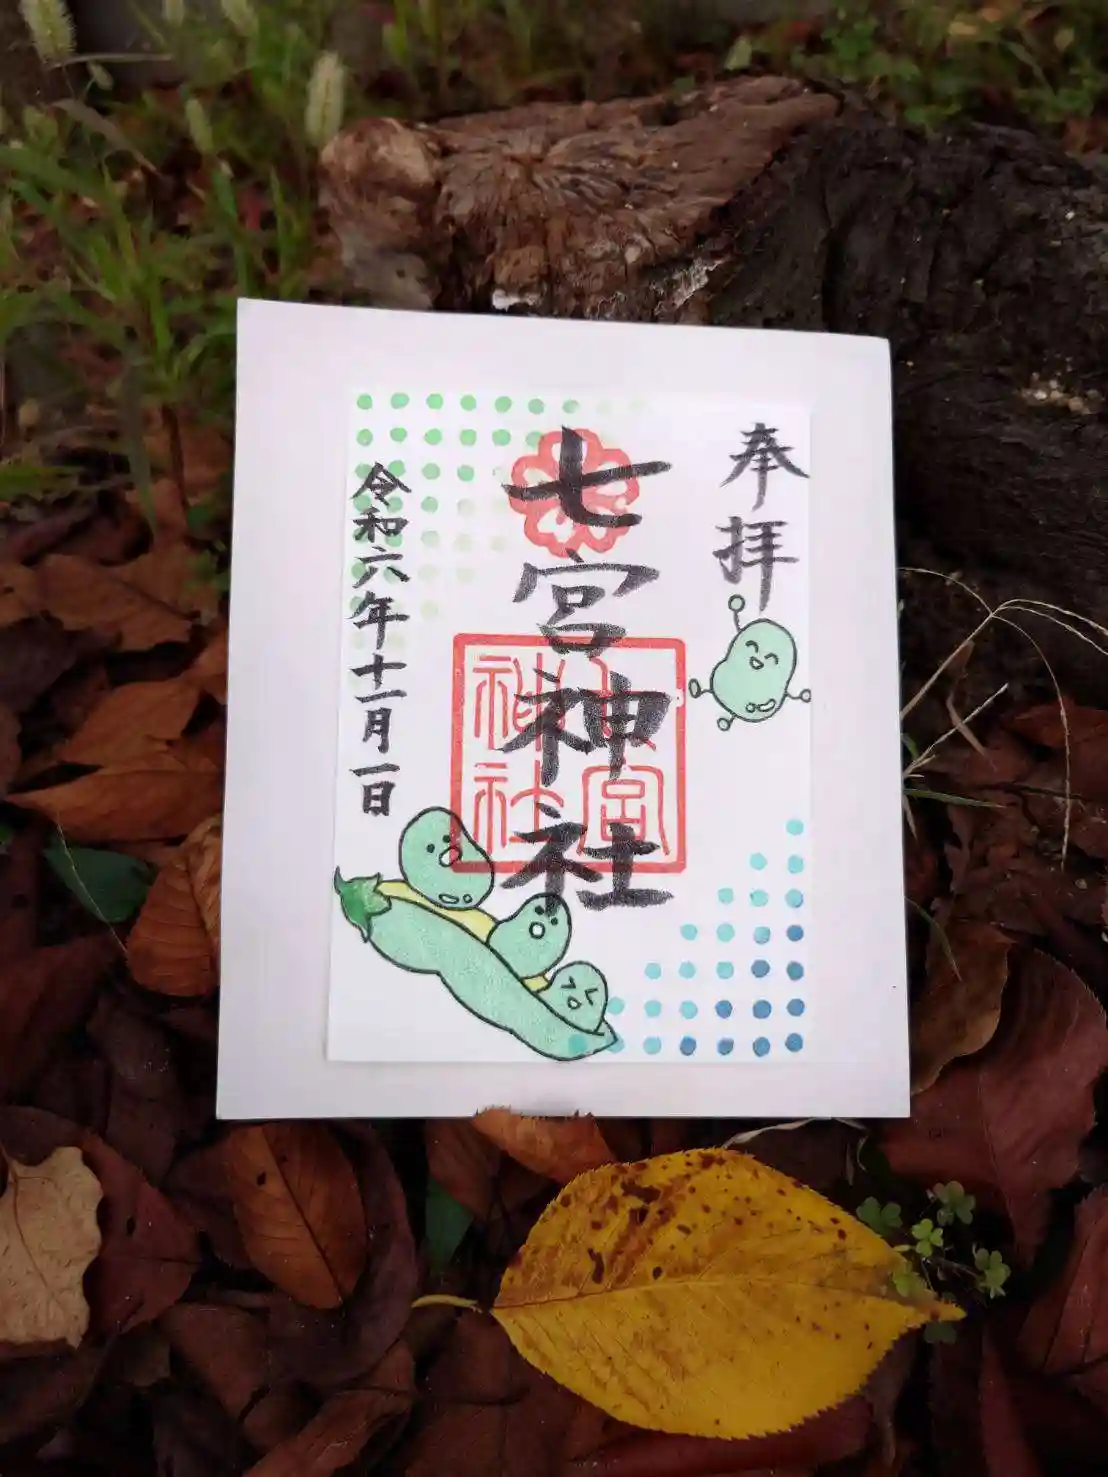 奉拝
七宮神社
七宮
神社
令和六年十一月一日